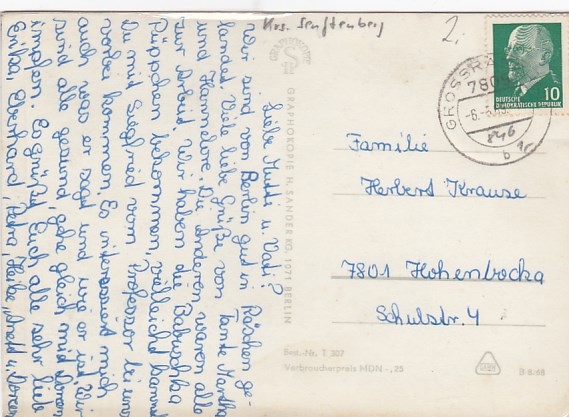 Krs. Senftenberg
2.
DEUTSCHE
DEMOKRATISCHE REPUBLIK
10
GROSSRÄ
780
-6.
846
b
Liebe Mutti u. Vati!
Wir sind von Berlin gut in Räschen ge-
landet. Viele liebe Grüße von Tante Martha
und Hannelore. Die anderen waren alle
zur Arbeit. Wir haben die Babuschka
Püppchen bekommen, vielleicht kannst
Du mit Siegfried vom Professor bei uns
vorbei kommen. Es interessiert mich
auch was er sagt und wie er ist. Wir
sind alle gesund, gehe gleich mit
impfen. Es grüßt Euch alle sehr lieb
Erika, Eberhard, Petra, Heike u. Doreen
GRAPHOKOPIE
GRAPHOKOPIE H. SANDER KG, 1071 BERLIN
Familie
Herbert Krause
7801 Hohenbocka
Schulstr. 4
Best.-Nr. T 307
Verbraucherpreis MDN -,25
B 6/68